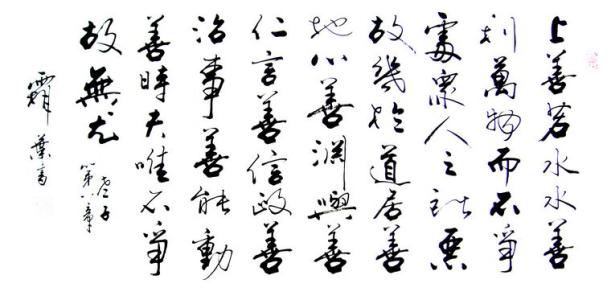 上善若水水善
利萬物而不爭
處衆人之所惡
故幾於道居善
地心善淵與善
仁言善信政善
治事善能動
善時夫唯不爭
故無尤
老子
第八章
葉書